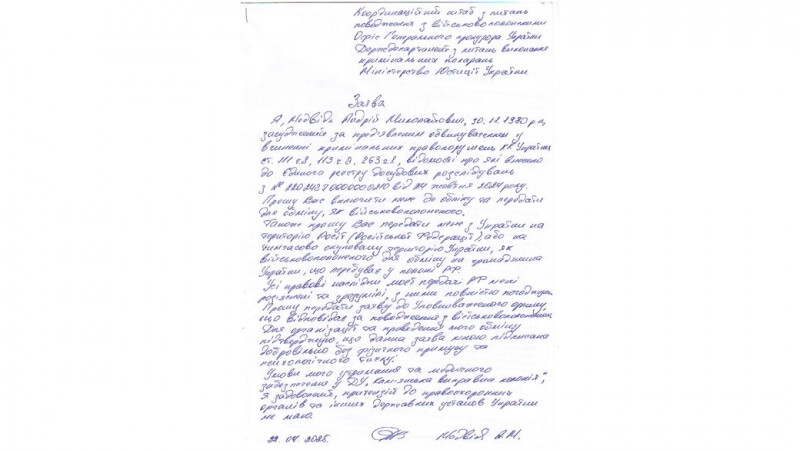 Координаційний штаб з питань
поводження з військовополоненими
Офіс Генерального прокурора України
Держдепартамент з питань виконання
кримінальних покарань
Міністерство Юстиції України
Заява
Я, Медвідь Андрій Миколайович, 30.12.1980 р.н,
засуджений за пред'явленим обвинуваченням у
вчиненні кримінальних правопорушень КК України
ст. 111 ч.2, 113 ч.2, 263 ч.1, відомості про які внесено
до Єдиного реєстру досудових розслідувань
з № від жовтня 2024 року.
Прошу Вас включити мене до обміну та передати
для обміну, як військовополоненого.
Також прошу Вас передати мене з України на
територію Росії (Російської Федерації), або на
тимчасово окуповану територію України, як
військовополоненого для обміну на громадянина
України, що перебуває у полоні РФ.
Усі правові наслідки моєї передачі РФ мені
роз'яснені та зрозумілі, з ними повністю погоджуюсь.
Прошу передати заяву до Уповноваженого органу,
що відповідає за поводження з військовополоненими
Для організації та проведення мого обміну
підтверджую, що данна заява мною підписана
добровільно без фізичного примусу та
психологічного тиску.
Умови мого утримання та медичного
забезпечення у ДУ „Кам'янська виправна колонія",
я задоволений, притензій до правоохоронних
органів та інших державних установ України
не маю.
22.04.2025. Медвідь А.М.